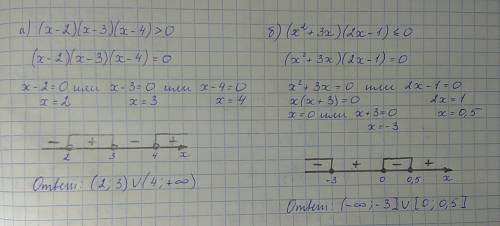 а) (x-2)(x-3)(x-4)>0
(x-2)(x-3)(x-4)=0
x-2=0 или x-3=0 или x-4=0
x=2 x=3 x=4
- + - +
2 3 4 x
Ответ: (2;3)∪(4;+∞)
б) (x²+3x)(2x-1)≤0
(x²+3x)(2x-1)=0
x²+3x=0 или 2x-1=0
x(x+3)=0 2x=1
x=0 или x+3=0 x=0,5
x=-3
- + - +
-3 0 0,5 x
Ответ: (-∞;-3]∪[0;0,5]